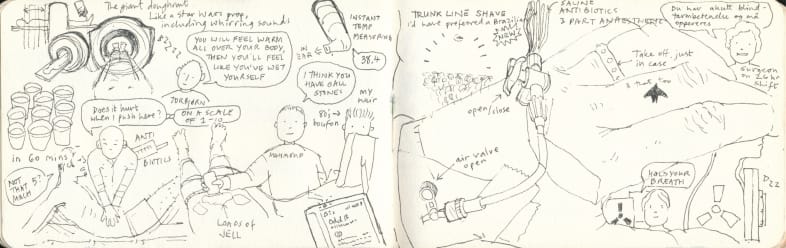 The giant doughnut
Like a Star Wars prop,
including whirring sounds
YOU WILL FEEL WARM
ALL OVER YOUR BODY,
THEN YOU'LL FEEL
LIKE YOU'VE WET
YOURSELF
TORBJØRN
IN 60 MINS
Does it hurt
when I push here?
ON A SCALE
OF 1-10
ANTI
BIOTICS
NOT
THAT
MUCH
5?
INSTANT
TEMP
MEASURING
IN
EAR
38.4
I THINK YOU
HAVE GALL
STONES
MAHMOUD
LOADS OF
JELL
my
hair
80's
boufon
TRUNK LINE SHAVE
I'd have preferred a Brazilian
SALINE
ANTIBIOTICS
3 PART ANAESTHETIC
open/close
air valve
open
Take off, just
in case
Du har akutt blind-
tarmbetennelse og må
opereres
Surgeon
on 26 hr
shift
HOLD YOUR
BREATH
D22